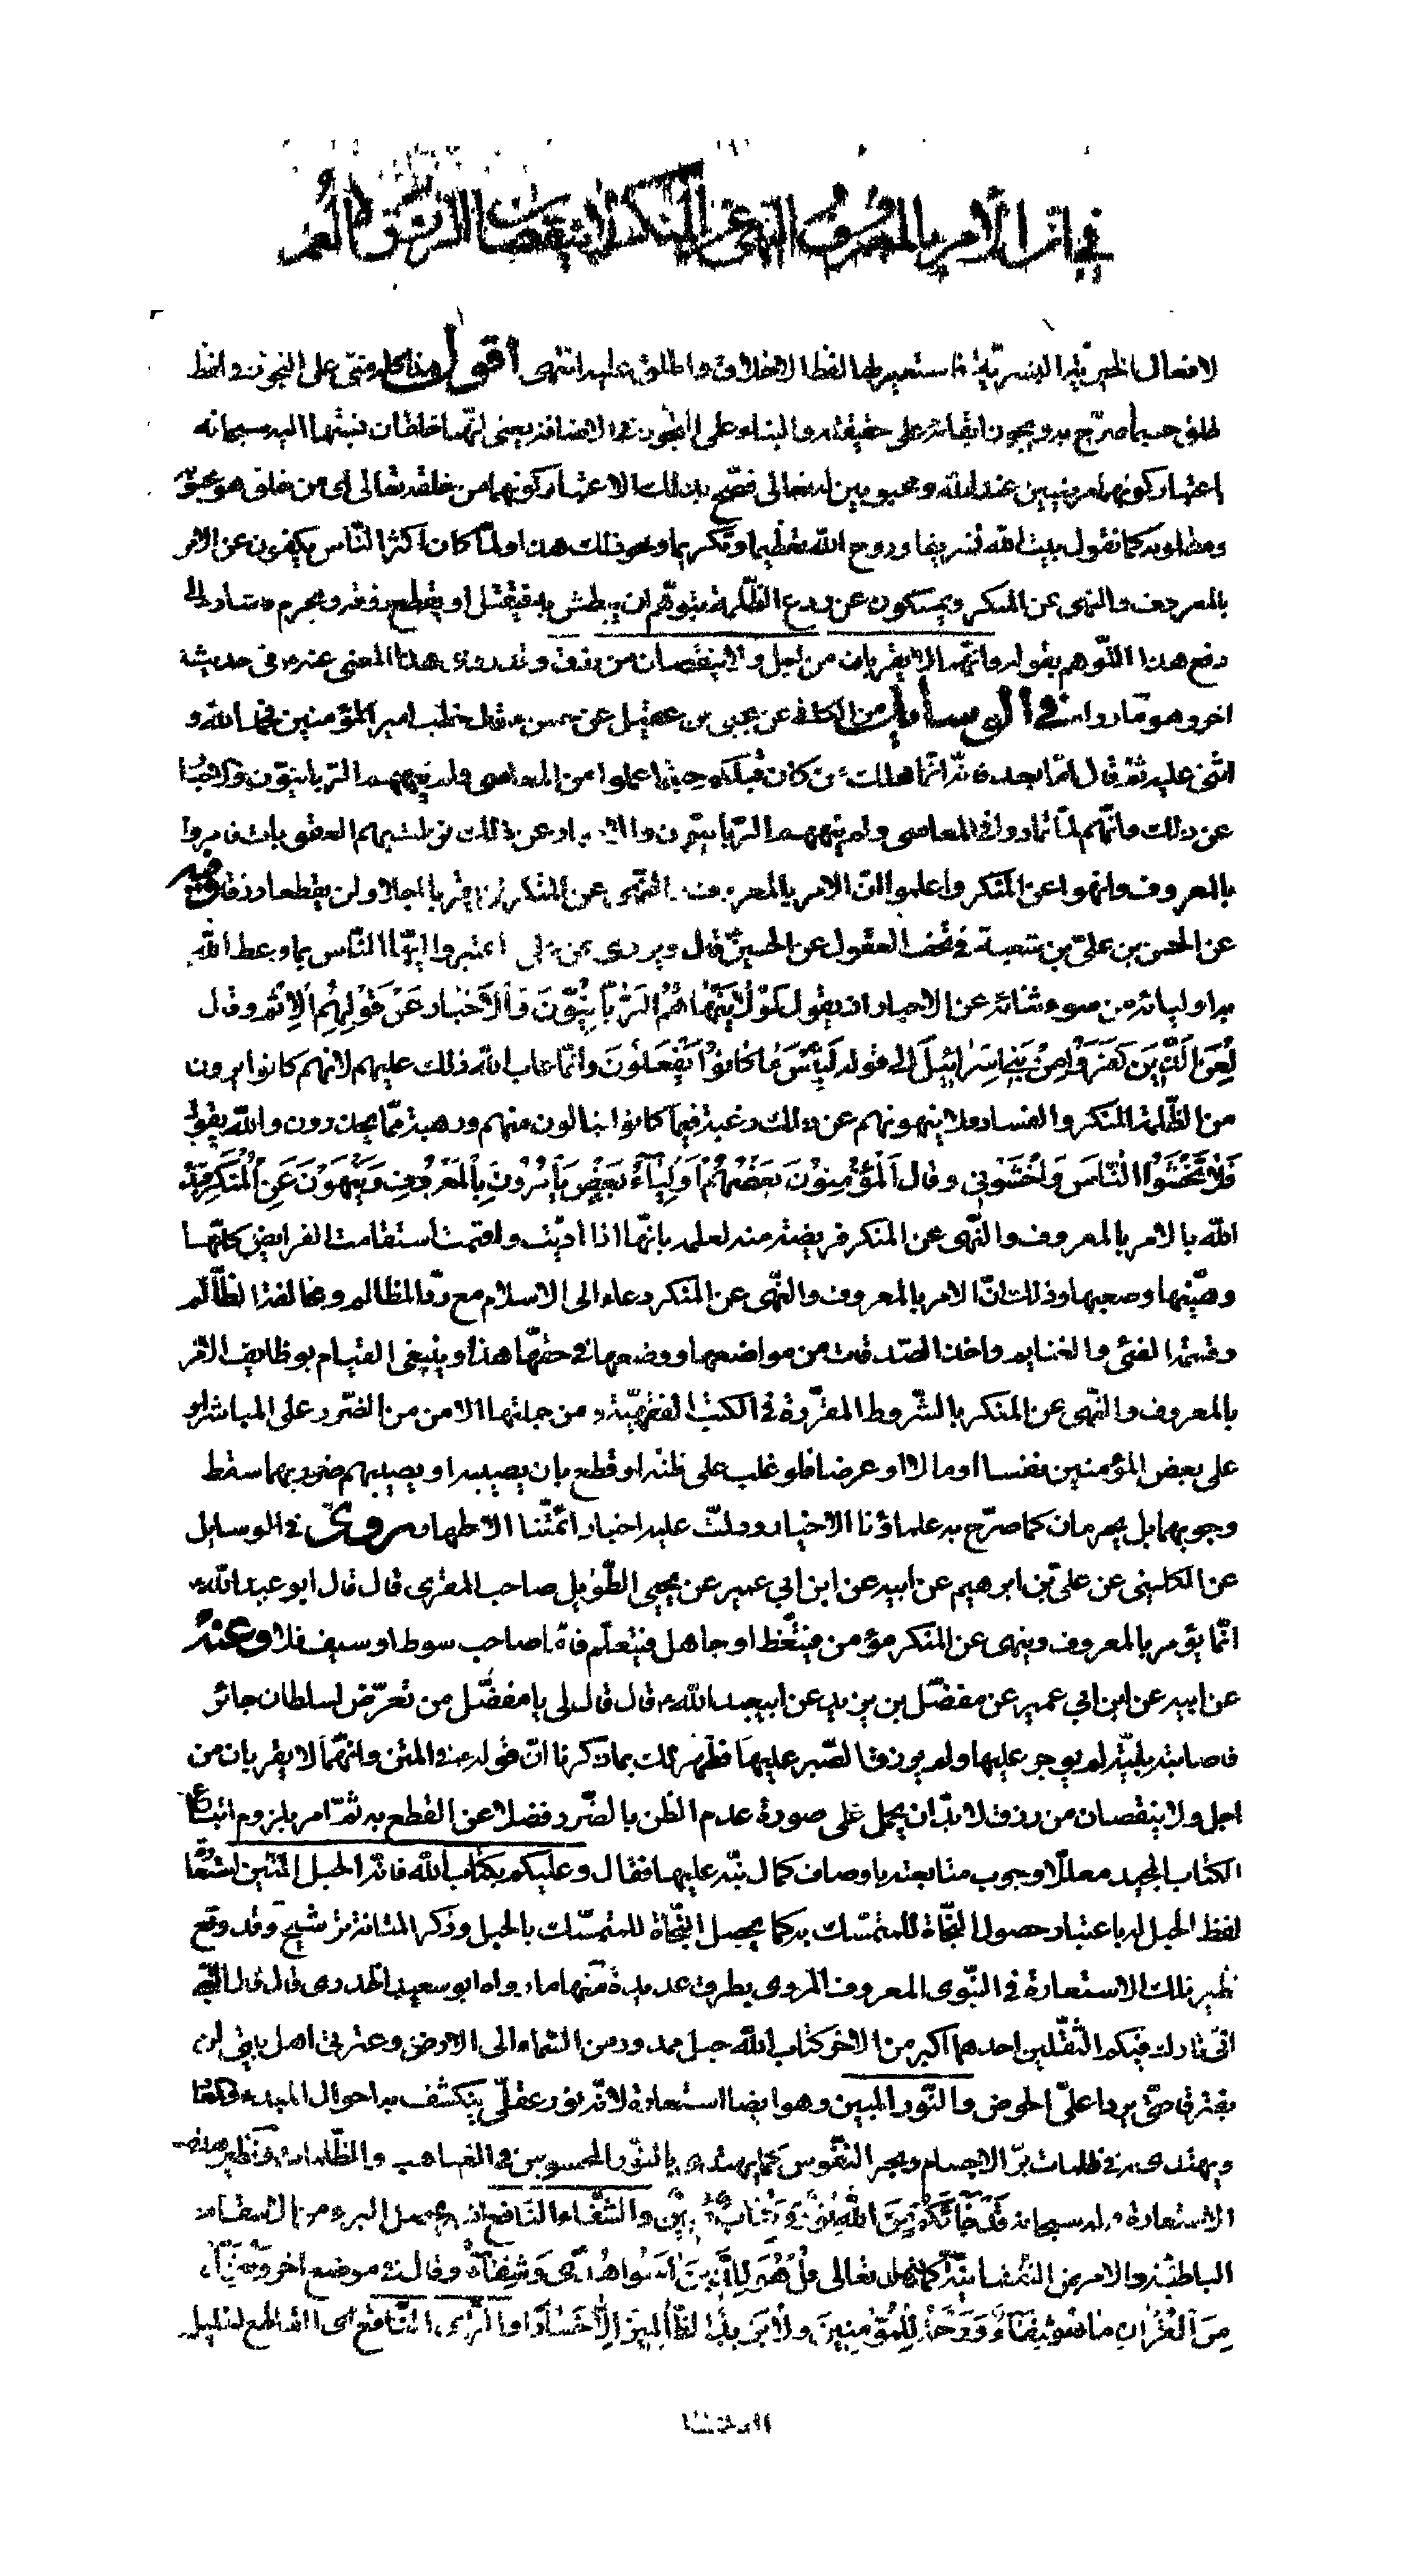 في ان الامر بالمعروف والنهي عن المنكر لا ينقصان الرزق والعمر
لافعال الخيرية البشرية فاستعير لها لفظ الاخلاق واطلق عليه انتهى اقول هذا كله مبنى على التجوز في لفظ
الخلق حسبما صرّح به ويجوز ابقائه على حقيقته والبناء على التجوز في الاضافة يعنى انّهما خلقان نسبتهما اليه سبحانه
باعتبار كونهما مرضيين عند الله ومحبوبين له تعالى فصّح بذلك الاعتبار كونهما من خلقه تعالى اى من خلق هو محبوبه
ومطلوبه كما نقول بيت الله تشريفا وروح الله تعظيما وتكريما ونحو ذلك هذا ولمّا كان اكثر النّاس يكفون عن الامر
بالمعروف والنهى عن المنكر ويمسكون عن ردع الظّلمة بتوهّم ان يبطش به فيقتل او يقطع رزقه ويحرم اشار الى
دفع هذا التّوهم بقوله وانّهما لا يقربان من اجل ولا ينقصان من رزق وقد روى هذا المعنى عنه في حديث
اخر وهو ما رواه في الوسايل من الكافي عن يحيى بن عقيل عن حسن قال خطب امير المؤمنين فحمد الله و
اثنى عليه ثمّ قال امّا بعد فانّه انّما هلك من كان قبلكم حيثما عملوا من المعاصى ولم ينههم الرّبانيّون والاحبار
عن ذلك وانّهم لمّا تمادوا في المعاصى ولم ينههم الرّبانيّون والاحبار عن ذلك نزلت بهم العقوبات فامروا
بالمعروف وانهوا عن المنكر واعلموا انّ الامر بالمعروف والنّهى عن المنكر لن يقربا اجلا ولن يقطعا رزقا وفيه
عن الحسن بن علىّ بن شعبة في تحف العقول عن الحسين قال ويروى عن على اعتبروا ايّها النّاس بما وعظ الله
به اوليائه من سوء ثنائه عن الاحبار اذ يقول لَوْلا يَنْهٰاهُمُ الرَّبّانِيُّونَ وَالْأَحْبٰارُ عَنْ قَوْلِهِمُ الْإِثْمَ وقال
لُعِنَ الَّذِينَ كَفَرُوا مِنْ بَنِي إِسْرٰائِيلَ الى قوله لَبِئْسَ مٰا كٰانُوا يَفْعَلُونَ وانّما عاب الله ذلك عليهم لانهم كانوا يرون
من الظّلمة المنكر والفساد فلا ينهونهم عن ذلك رغبة فيما كانوا ينالون منهم ورهبة ممّا يحذرون والله يقول
فَلا تَخْشَوُا النّٰاسَ وَاخْشَوْنِي وقال الْمُؤْمِنُونَ بَعْضُهُمْ أَوْلِيٰاءُ بَعْضٍ يَأْمُرُونَ بِالْمَعْرُوفِ وَيَنْهَوْنَ عَنِ الْمُنْكَرِ فبدء
الله بالامر بالمعروف والنّهى عن المنكر فريضة منه لعلمه بانّها اذا ادّيت واقيمت استقامت الفرايض كلّها
هيّنها وصعبها وذلك انّ الامر بالمعروف والنّهى عن المنكر دعاء الى الاسلام مع ردّ المظالم ومخالفة الظّالم
وقسمة الفئ والغنايم واخذ الصّدقات من مواضعها ووضعها في حقّها هذا وينبغى القيام بوظايف الامر
بالمعروف والنّهى عن المنكر بالشّروط المقرّرة في الكتب الفقهيّة ومن جملتها الامن من الضّرر على المباشر او
على بعض المؤمنين نفسا او مالا او عرضا فلو غلب على ظنه او قطع بان يصيبه او يصيبهم ضرر بهما سقط
وجوبهما بل يحرمان كما صرّح به علماؤنا الاخيار ودلّت عليه اخبار ائمّتنا الاطهار روى في الوسايل
عن الكلينى عن علىّ بن ابرهيم عن ابيه عن ابن ابي عمير عن يحيى الطّويل صاحب المقرى قال قال ابو عبد الله
انّما يؤمر بالمعروف وينهى عن المنكر مؤمن فيتّعظ او جاهل فيتعلّم فامّا صاحب سوط او سيف فلا وعنه
عن ابيه عن ابن ابي عمير عن مفضّل بن يزيد عن ابيعبد الله قال قال لى يا مفضّل من تعرّض لسلطان جائر
فاصابته بليّة لم يوجر عليها ولم يرزق الصّبر عليها فظهر لك بما ذكرنا انّ قوله في المتن وانّهما لا يقربان من
اجل ولا ينقصان من رزق لا بدّ ان يحمل على صورة عدم الظن بالضّرر فضلا عن القطع به ثمّ امر بلزوم اتباع
الكتاب المجيد معللا وجوب متابعته باوصاف كمال نبّه عليها فقال وعليكم بكتاب الله فانّه الحبل المتين استعار
لفظ الحبل له باعتبار حصول النّجاة للمتمسّك به كما يحصل النّجاة للمتمسّك بالحبل وذكر المتانة ترشيح وقد وقع
نظير تلك الاستعارة في النّبوى المعروف المروى بطرق عديدة منها ما رواه ابو سعيد الخدرى قال قال النّبي
انّى تارك فيكم الثّقلين احدهما اكبر من الاخر كتاب الله حبل ممدود من السّماء الى الارض وعترتى اهل بيتى لن
يفترقا حتّى يردا علىّ الحوض والنّور المبين وهو ايضا استعارة لانّه نور عقلىّ ينكشف به احوال المبدء والمعاد
ويهتدى به في ظلمات برّ الاجسام وبحر النّفوس كما يهتدى بالنّور المحسوس في الغياهب والظّلمات ونظير هذه
الاستعارة قوله سبحانه قَدْ جٰاءَكُمْ مِنَ اللهِ نُورٌ وَكِتٰابٌ مُبِينٌ والشّفاء النّافع اذ به يحصل البرء من الاسقام
الباطنيّة والامراض النّفسانيّة كما قال تعالى قُلْ هُوَ لِلَّذِينَ آمَنُوا هُدىً وَشِفٰاءٌ وقال في موضع اخر وَنُنَزِّلُ
مِنَ الْقُرْآنِ مٰا هُوَ شِفٰاءٌ وَرَحْمَةٌ لِلْمُؤْمِنِينَ وَلا يَزِيدُ الظّٰالِمِينَ إِلّا خَسٰاراً والرّىّ النّاقع اى القاطع لغليل